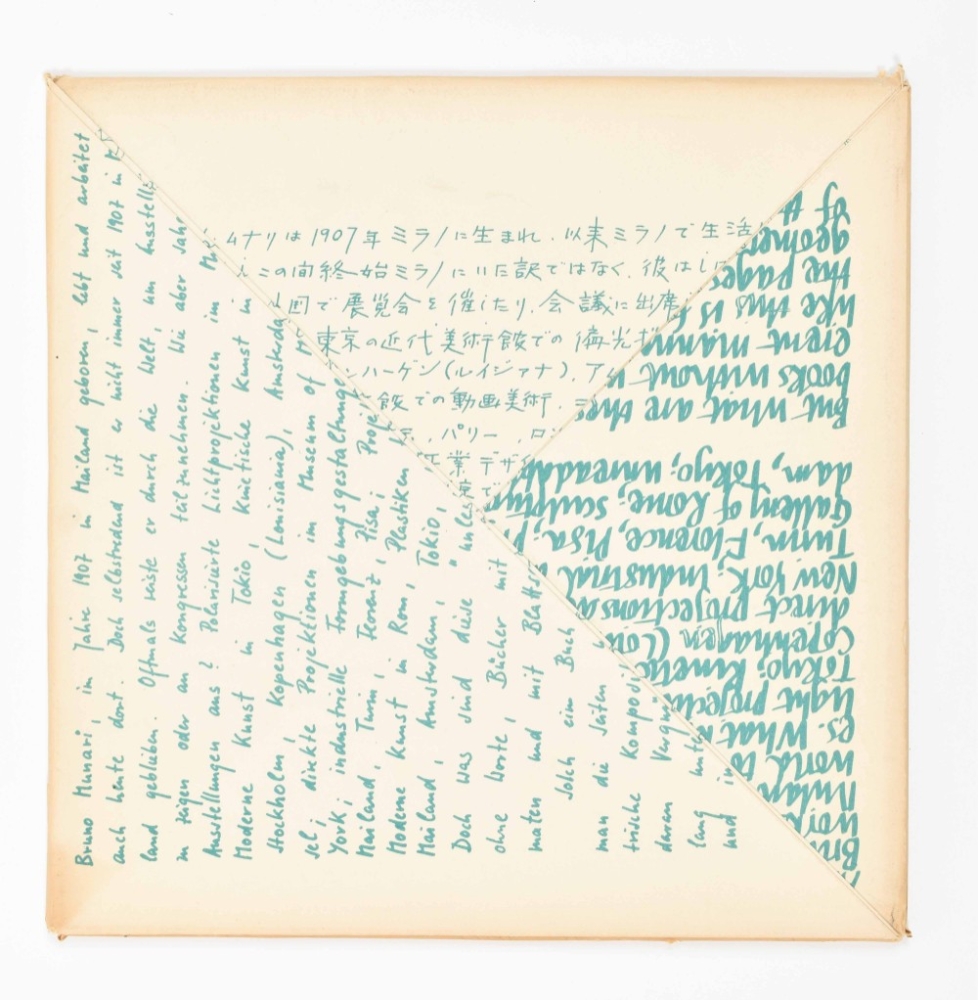 Bruno Munari, im Jahre 1907 in Mailand geboren, lebt und arbeitet
auch heute dort. Doch selbstredend ist er nicht immer seit 1907 in
land geblieben. Oftmals reiste er durch die Welt, um
zu zeigen oder an Kongressen teilzunehmen. Wie aber
Ausstellungen aus? Polarisierte Lichtprojektionen im
Moderne Kunst in Tokio, Kinetische Kunst in
Stockholm, Kopenhagen (Louisiana), Amsterdam
sel; direkte Projektionen im Museum of
York; industrielle Formgebungsgestaltung
Mailand, Turin, Florenz, Pisa;
Moderne Kunst in Rom, Plastiken
Mailand, Amsterdam, Tokio,
Doch was sind diese "unles
ohne Worte, Bücher mit
maten und mit Blätt
Solch ein Buch
man die Seiten
trische Komposi
daran Vergnü
lung hinter
und in
ムナリは1907年ミラノに生まれ、以来ミラノで生活
この間終始ミラノにいた訳ではなく、彼は
回で展覧会を催したり、会議に出席
東京の近代美術館での偏光
ハーゲン(ルイジアナ)、ア
館での動画美術、
、パリー、ロン
工業デザイ
京で
Bru
work
Milan
world to
es. What
light projecti
Tokyo; kinetic
Copenhagen (Lou
direct projections a
New York. Industrial
Turin, Florence, Pisa,
Gallery of Rome; sculptur
dam, Tokyo; unreadab
But what are thes
books without
erent mann
like this is
the pages
geomet
of th